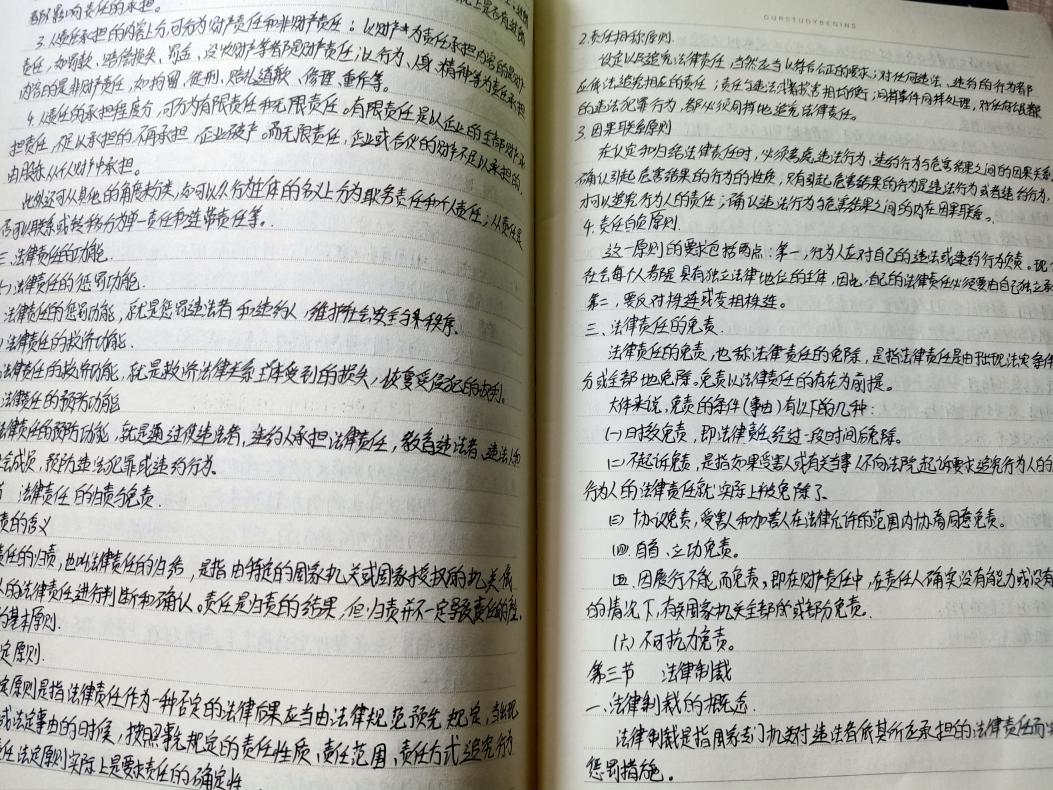 都影响责任的承担。
3.从责任承担的内容上分,可分为财产责任和非财产责任:以财产为责任承担内容的是财产
责任,如罚款、赔偿损失、罚金、没收财产等都是财产责任;以行为、人身、精神等为责任承担
内容的是非财产责任,如拘留、徒刑、赔礼道歉、修理、重作等。
4.从责任的承担程度分,可分为有限责任和无限责任。有限责任是以企业的全部财产承
担责任,不足以承担的不再承担,企业破产。而无限责任,企业或合伙的财产不足以承担的,
由股东从个人财产中承担。
此外还可以从其他的角度来分类,如可以从行为主体的名义上分为职务责任和个人责任;从责任是
否可以联系或转移分为单一责任和连带责任等。
三.法律责任的功能.
法律责任的惩罚功能.
法律责任的惩罚功能,就是惩罚违法者和违约人,维护社会安全与秩序.
法律责任的救济功能.
法律责任的救济功能,就是救济法律关系主体受到的损失,恢复受侵犯的权利。
法律责任的预防功能
法律责任的预防功能,就是通过使违法者,违约人承担法律责任,教育违法者、违法人和
会成员,预防违法犯罪或违约行为。
法律责任的归责与免责.
责的含义
责任的归责,也叫法律责任的归结,是指由特定的国家机关或国家授权的机关依
人的法律责任进行判断和确认。责任是归责的结果,但归责并不一定导致责任的产生.
的基本原则.
定原则.
定原则是指法律责任作为一种否定的法律后果应当由法律规范预先规定,当出现
或法定事由的时候,按照事先规定的责任性质、责任范围、责任方式追究行为
任法定原则实际上是要求责任的确定性.
OURSTUDYBEGINS
2.责任相称原则.
设定以及追究法律责任,当然应当以符合公正的要求;对任何违法、违约的行为都
应依法追究相应的责任;责任与违法或损害相均衡;同样事件同样处理,对任何组织
的违法犯罪行为,都必须同样地追究法律责任。
3.因果联系原则
在认定和归结法律责任时,必须考虑违法行为、违约行为与危害结果之间的因果关系
确认引起危害结果的行为的性质,只有引起危害结果的行为是违法行为或者违约行为,
才可以追究行为人的责任;确认违法行为与危害结果之间的内在因果联系。
4.责任自负原则.
这一原则的要求包括两点:第一,行为人应对自己的违法或违约行为负责。现
社会每个人都是具有独立法律地位的主体,因此,自己的法律责任必须要由自己独立承
第二,要反对株连或变相株连。
三.法律责任的免责.
法律责任的免责,也称法律责任的免除,是指法律责任是由于出现法定条件
分或全部地免除。免责以法律责任的存在为前提。
大体来说,免责的条件(事由)有以下的几种:
(一)时效免责,即法律责任经过一段时间后免除。
(二)不起诉免责,是指如果受害人或有关当事人不向法院起诉要求追究行为人的
行为人的法律责任就实际上被免除了.
(三)协议免责,受害人和加害人在法律允许的范围内协商同意免责。
(四)自首、立功免责。
(五)因履行不能而免责,即在财产责任中,在责任人确实没有能力或没有
的情况下,有关国家机关全部或部分免责.
(六)不可抗力免责。
第三节 法律制裁
一.法律制裁的概述.
法律制裁是指国家专门机关对违法者依其所应承担的法律责任而实
惩罚措施。